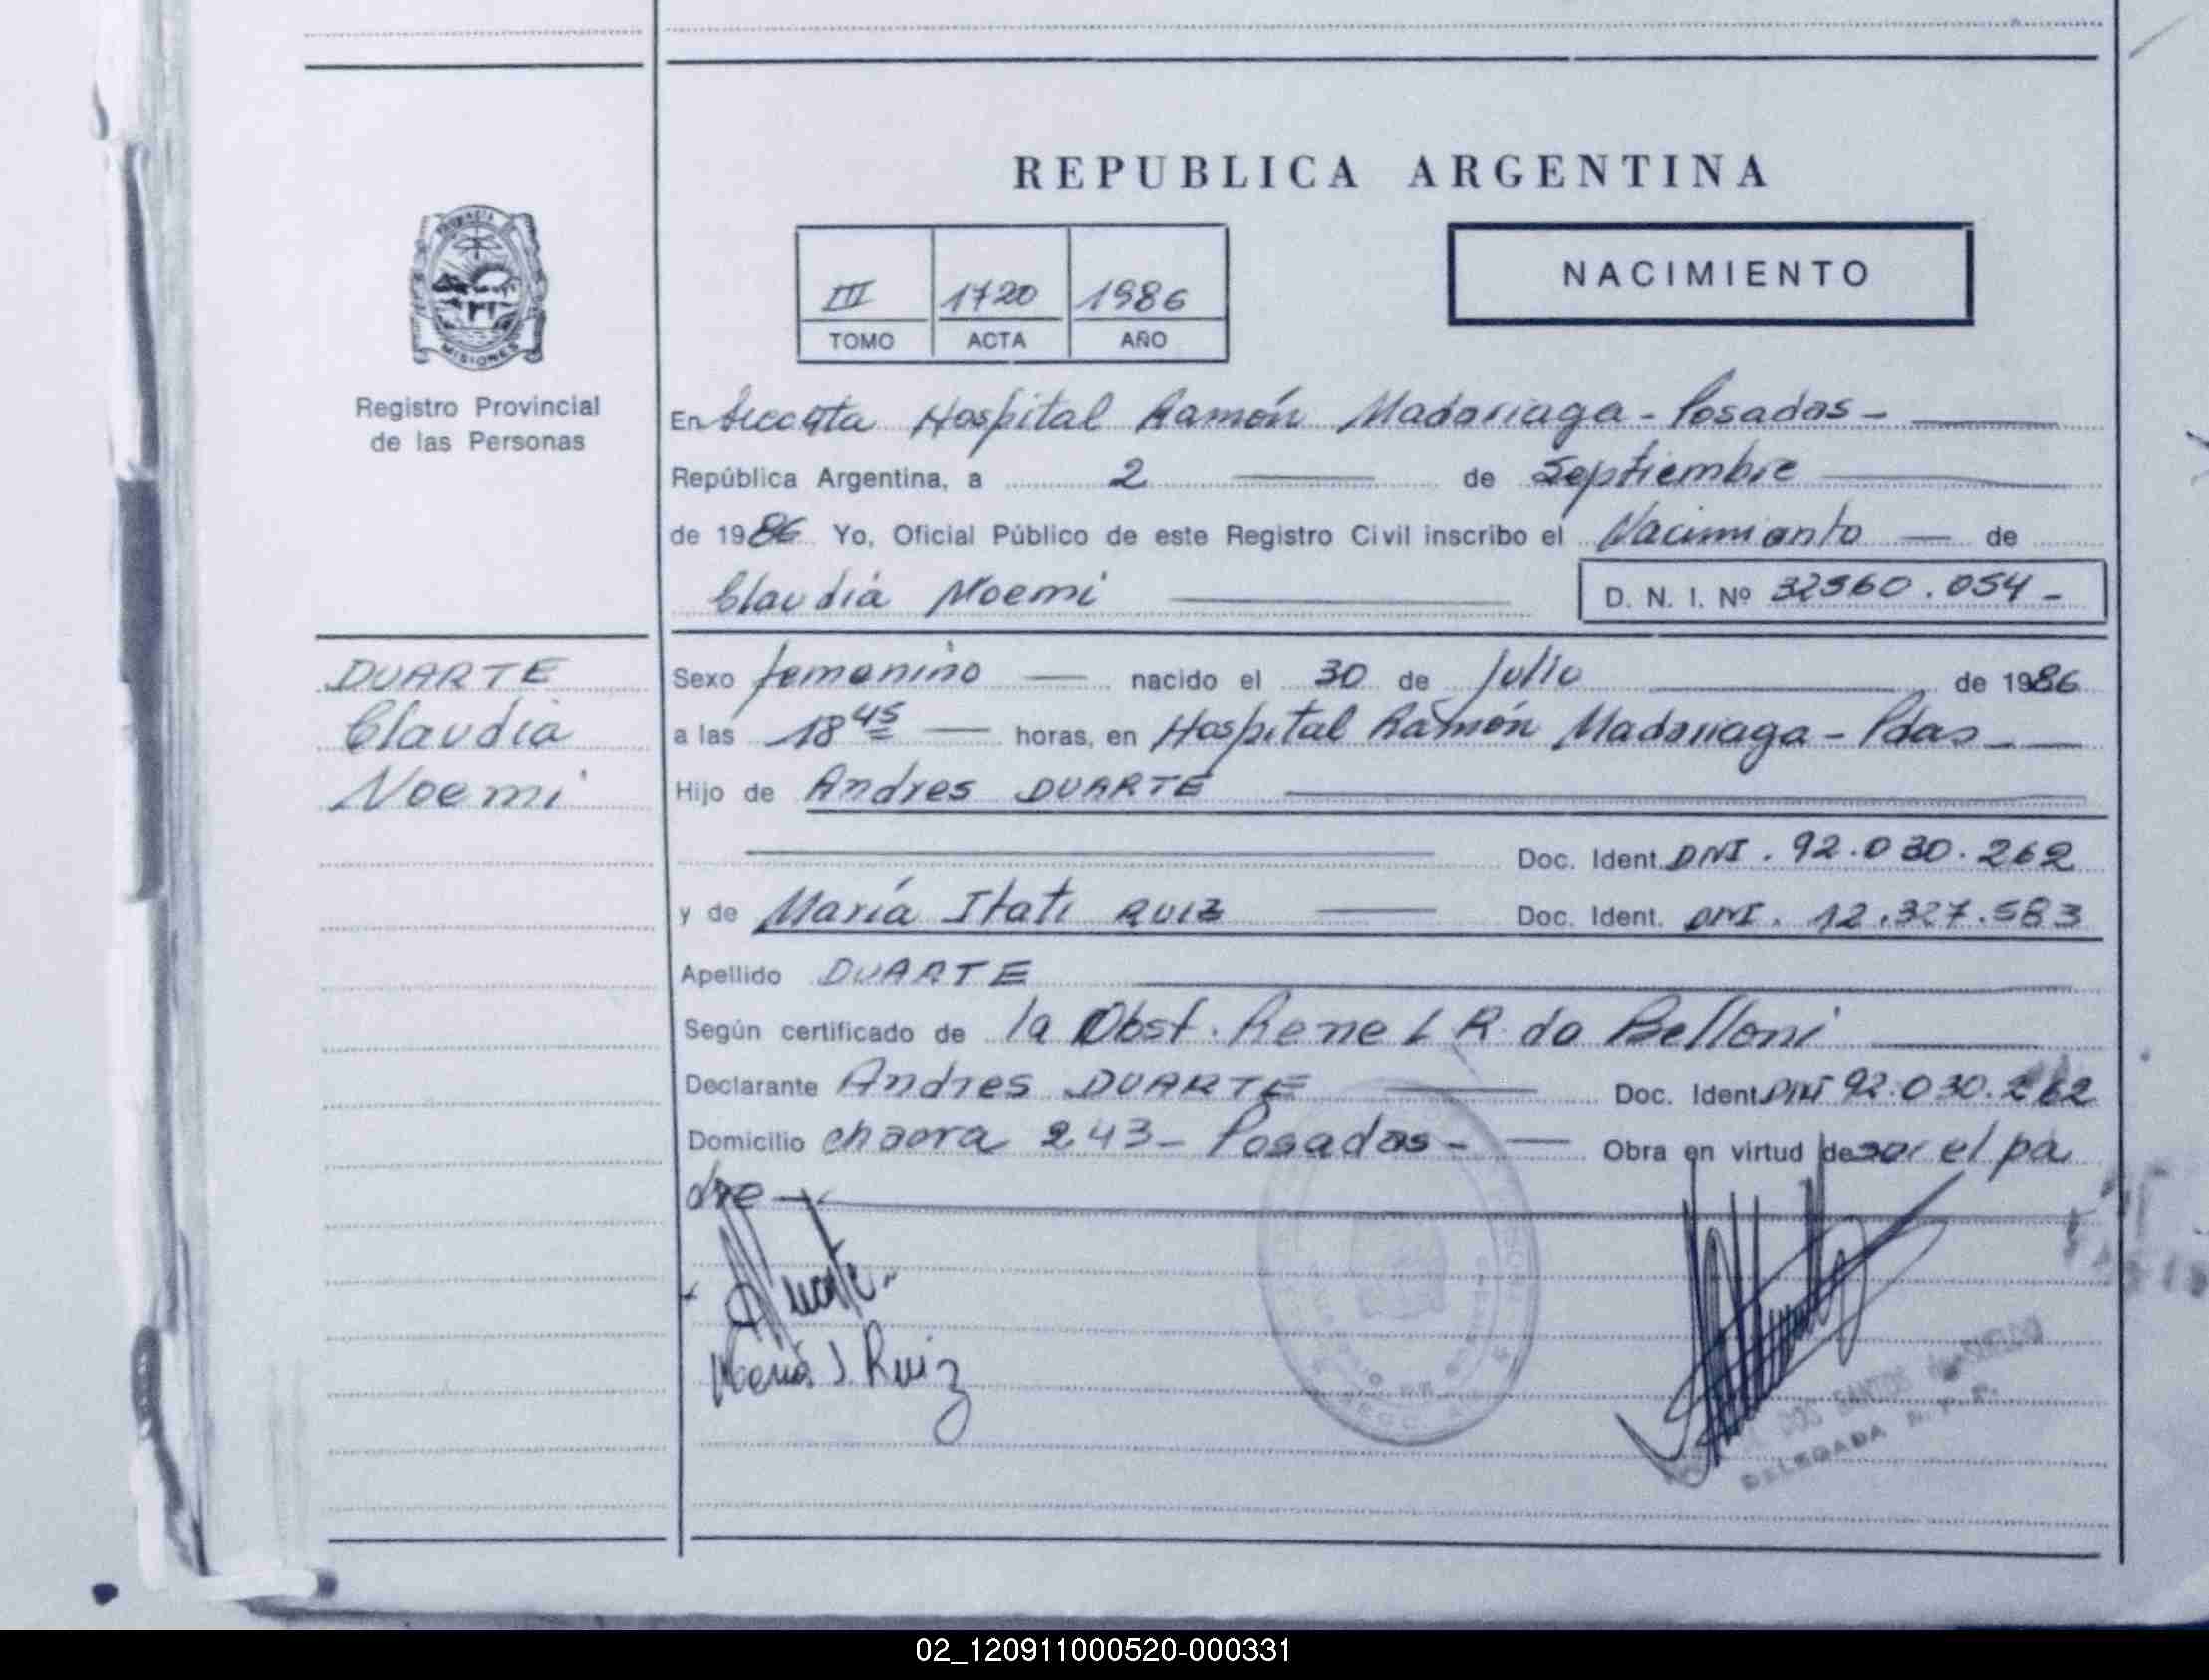 REPUBLICA ARGENTINA
III 1720 1986
TOMO ACTA AÑO
NACIMIENTO
PROVINCIA DE MISIONES
Registro Provincial
de las Personas
En Seccta Hospital Ramón Madariaga - Posadas -
República Argentina, a 2 de Septiembre
de 1986 Yo, Oficial Público de este Registro Civil inscribo el Nacimiento de
Claudia Noemi D. N. I. Nº 32.560.054 -
DUARTE
Claudia
Noemi
Sexo femenino nacido el 30 de Julio de 1986
a las 18 45 horas, en Hospital Ramón Madariaga - Pdas -
Hijo de Andres DUARTE
Doc. Ident. DNI. 92.030.262
y de María Itati RUIZ Doc. Ident. DNI. 12.327.583
Apellido DUARTE
Según certificado de la Obst. Rene L R. de Belloni
Declarante Andres DUARTE Doc. Ident. DNI 92.030.262
Domicilio chacra 243 - Posadas - Obra en virtud de ser el pa
dre
Duarte
María I. Ruiz
DOS SANTOS
DELEGADA R. P. P.
02_120911000520-000331